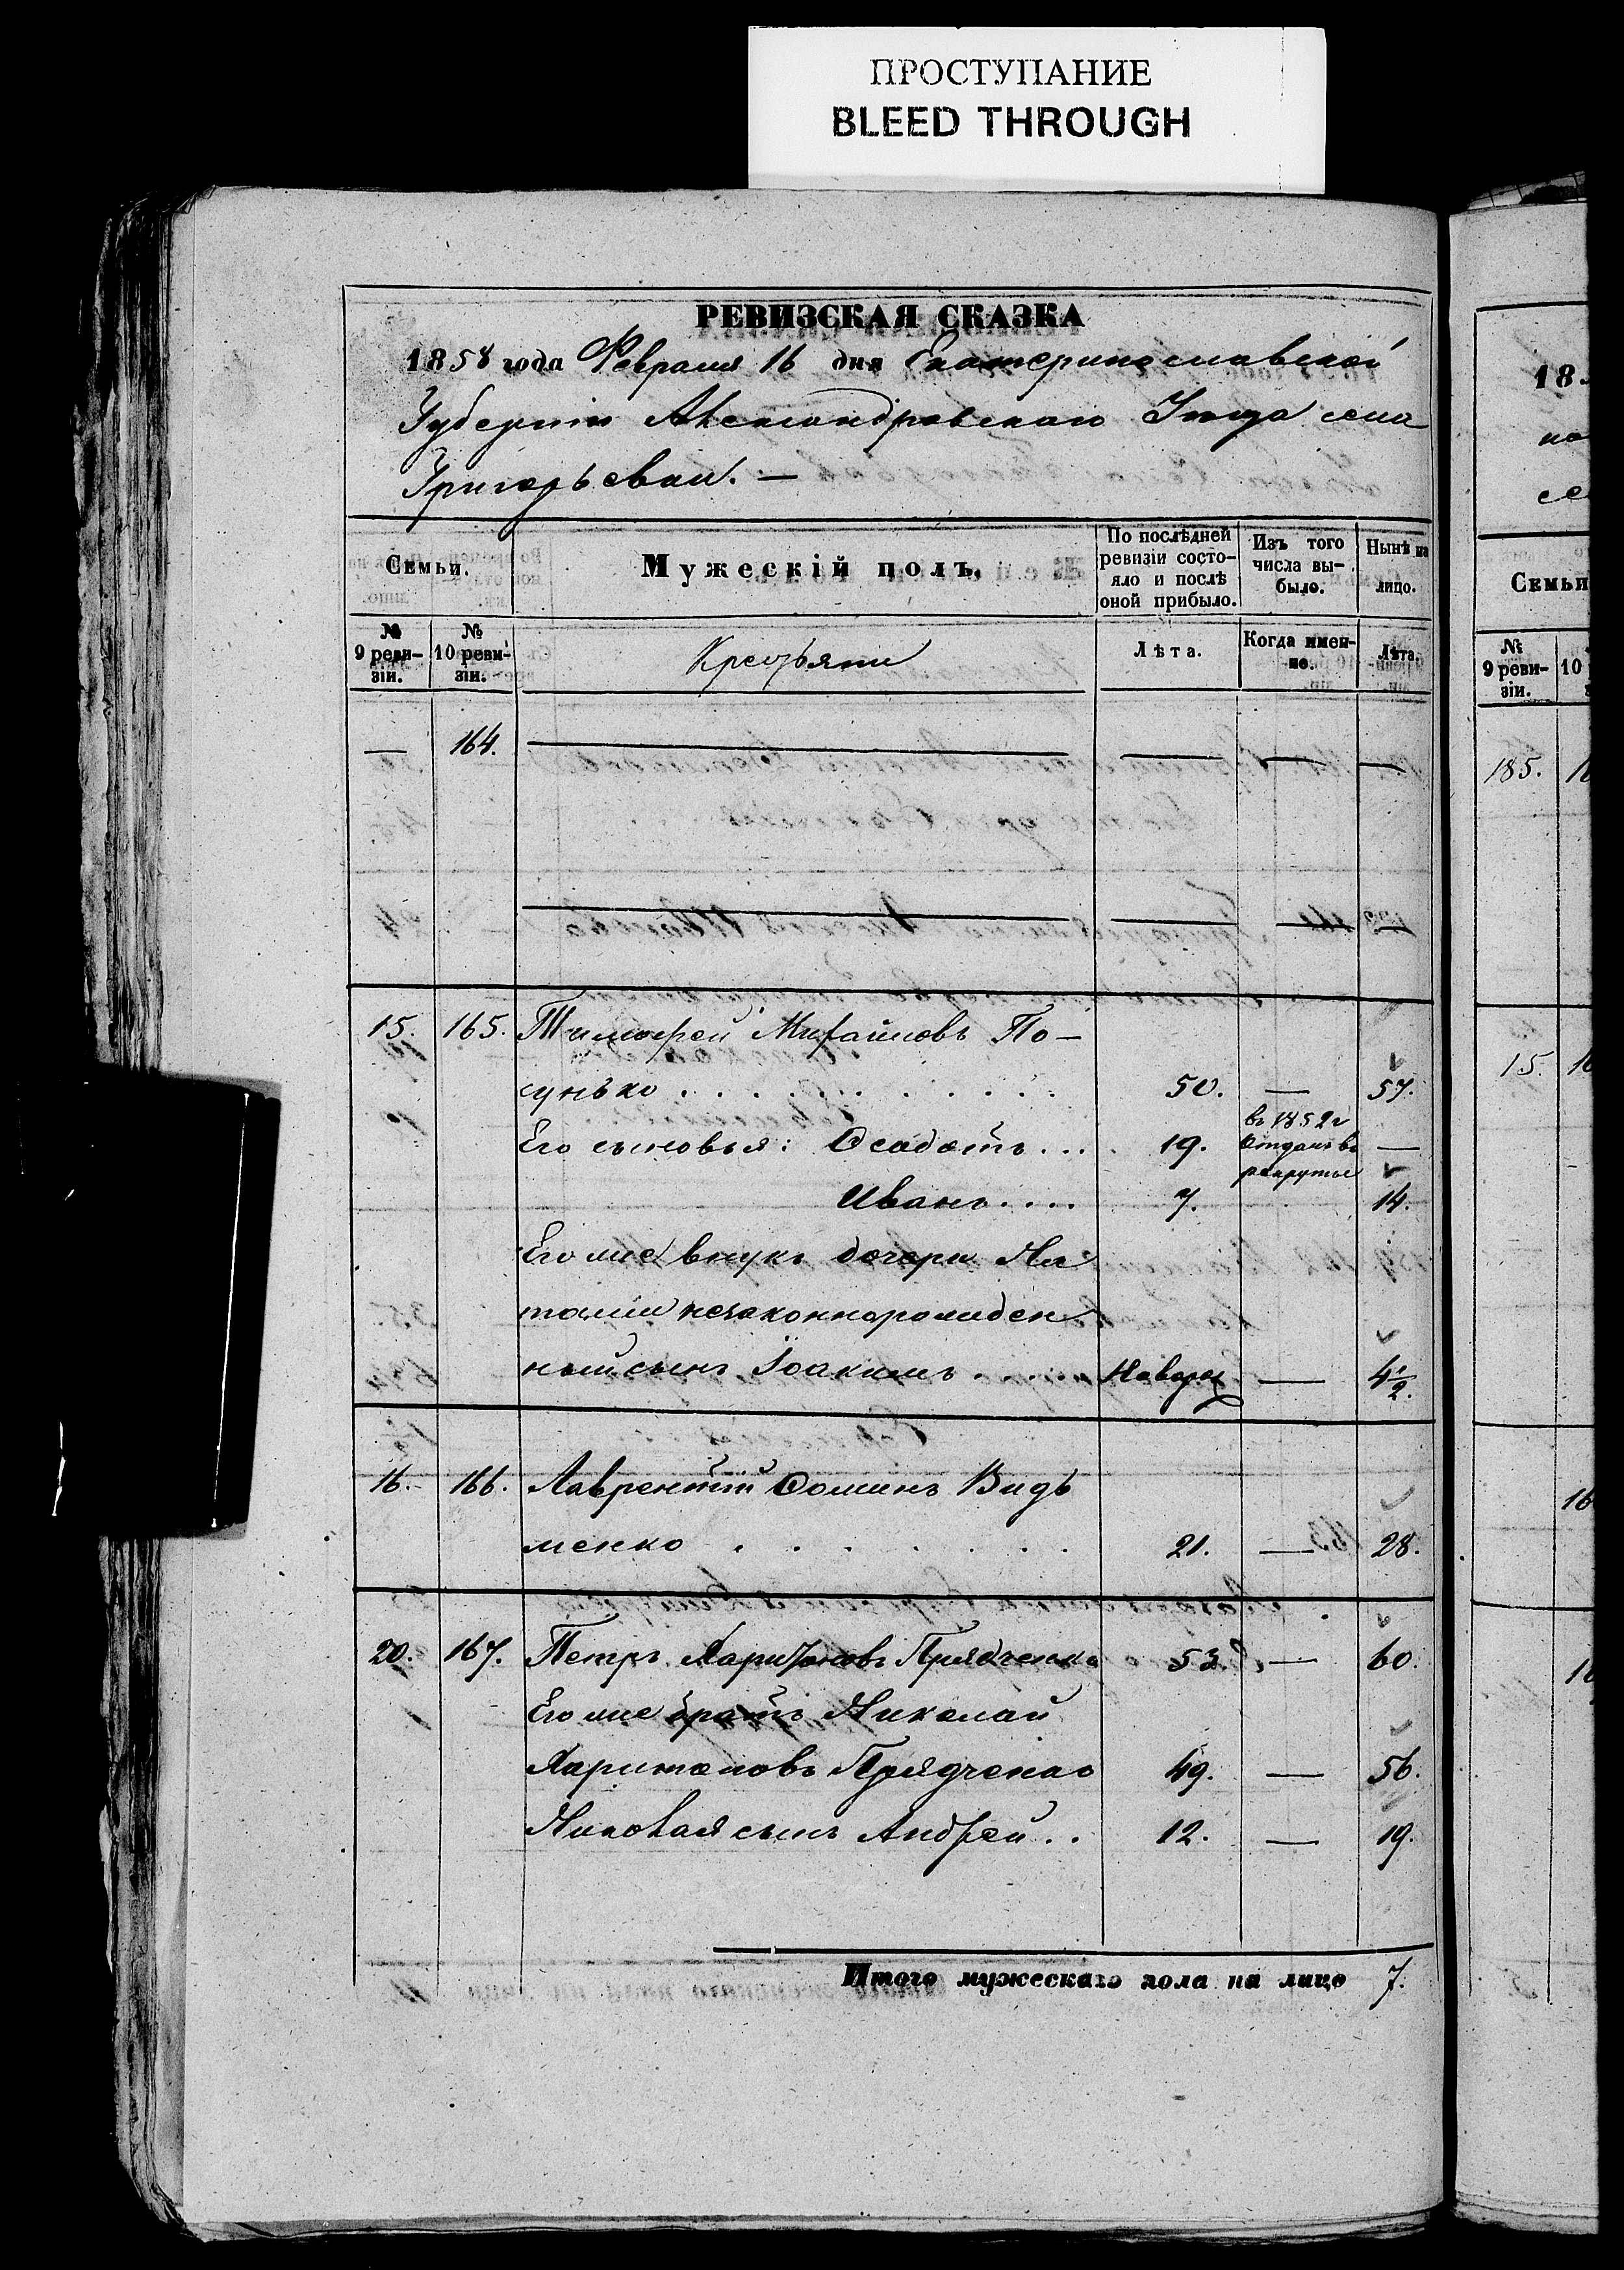 ПРОСТУПАНИЕ
BLEED THROUGH
РЕВИЗСКАЯ СКАЗКА
1858 года Февраля 16 дня Екатеринославской
Губерніи Александровскаго Уезда села
Григорьевки. —
Семьи.
Мужескій полъ.
По послѣдней ревизіи состояло и послѣ оной прибыло.
Изъ того числа выбыло.
Нынѣ на лицо.
№ 9 ревизіи.
№ 10 ревизіи.
Крестьяни
Лѣта.
Когда именно.
Лѣта.
— 164. — — — —
15. 165. Тимофей Михайловъ По-
сунько . . . . . . . . 50. — 57.
Его сыновья: Осадотъ . . . 19. въ 1852 г отданъ въ рекруты —
Иванъ . . . . 7. 14.
Его же внукъ дочери На
таліи незаконнорожден
ный сынъ Іоакимъ . . . . . Новорож — 4 1/2.
16. 166. Лаврентій Фоминъ Видь
менко . . . . . . . 21. — 28.
20. 167. Петръ Харитоновъ Прядченко 53. — 60.
Его же братъ Николай
Харитоновъ Прядченко 49. — 56.
Николая сынъ Андрей . . 12. — 19.
Итого мужескаго пола на лицо 7.
18
Семьи
№ 9 ревизіи.
10
185.
15.